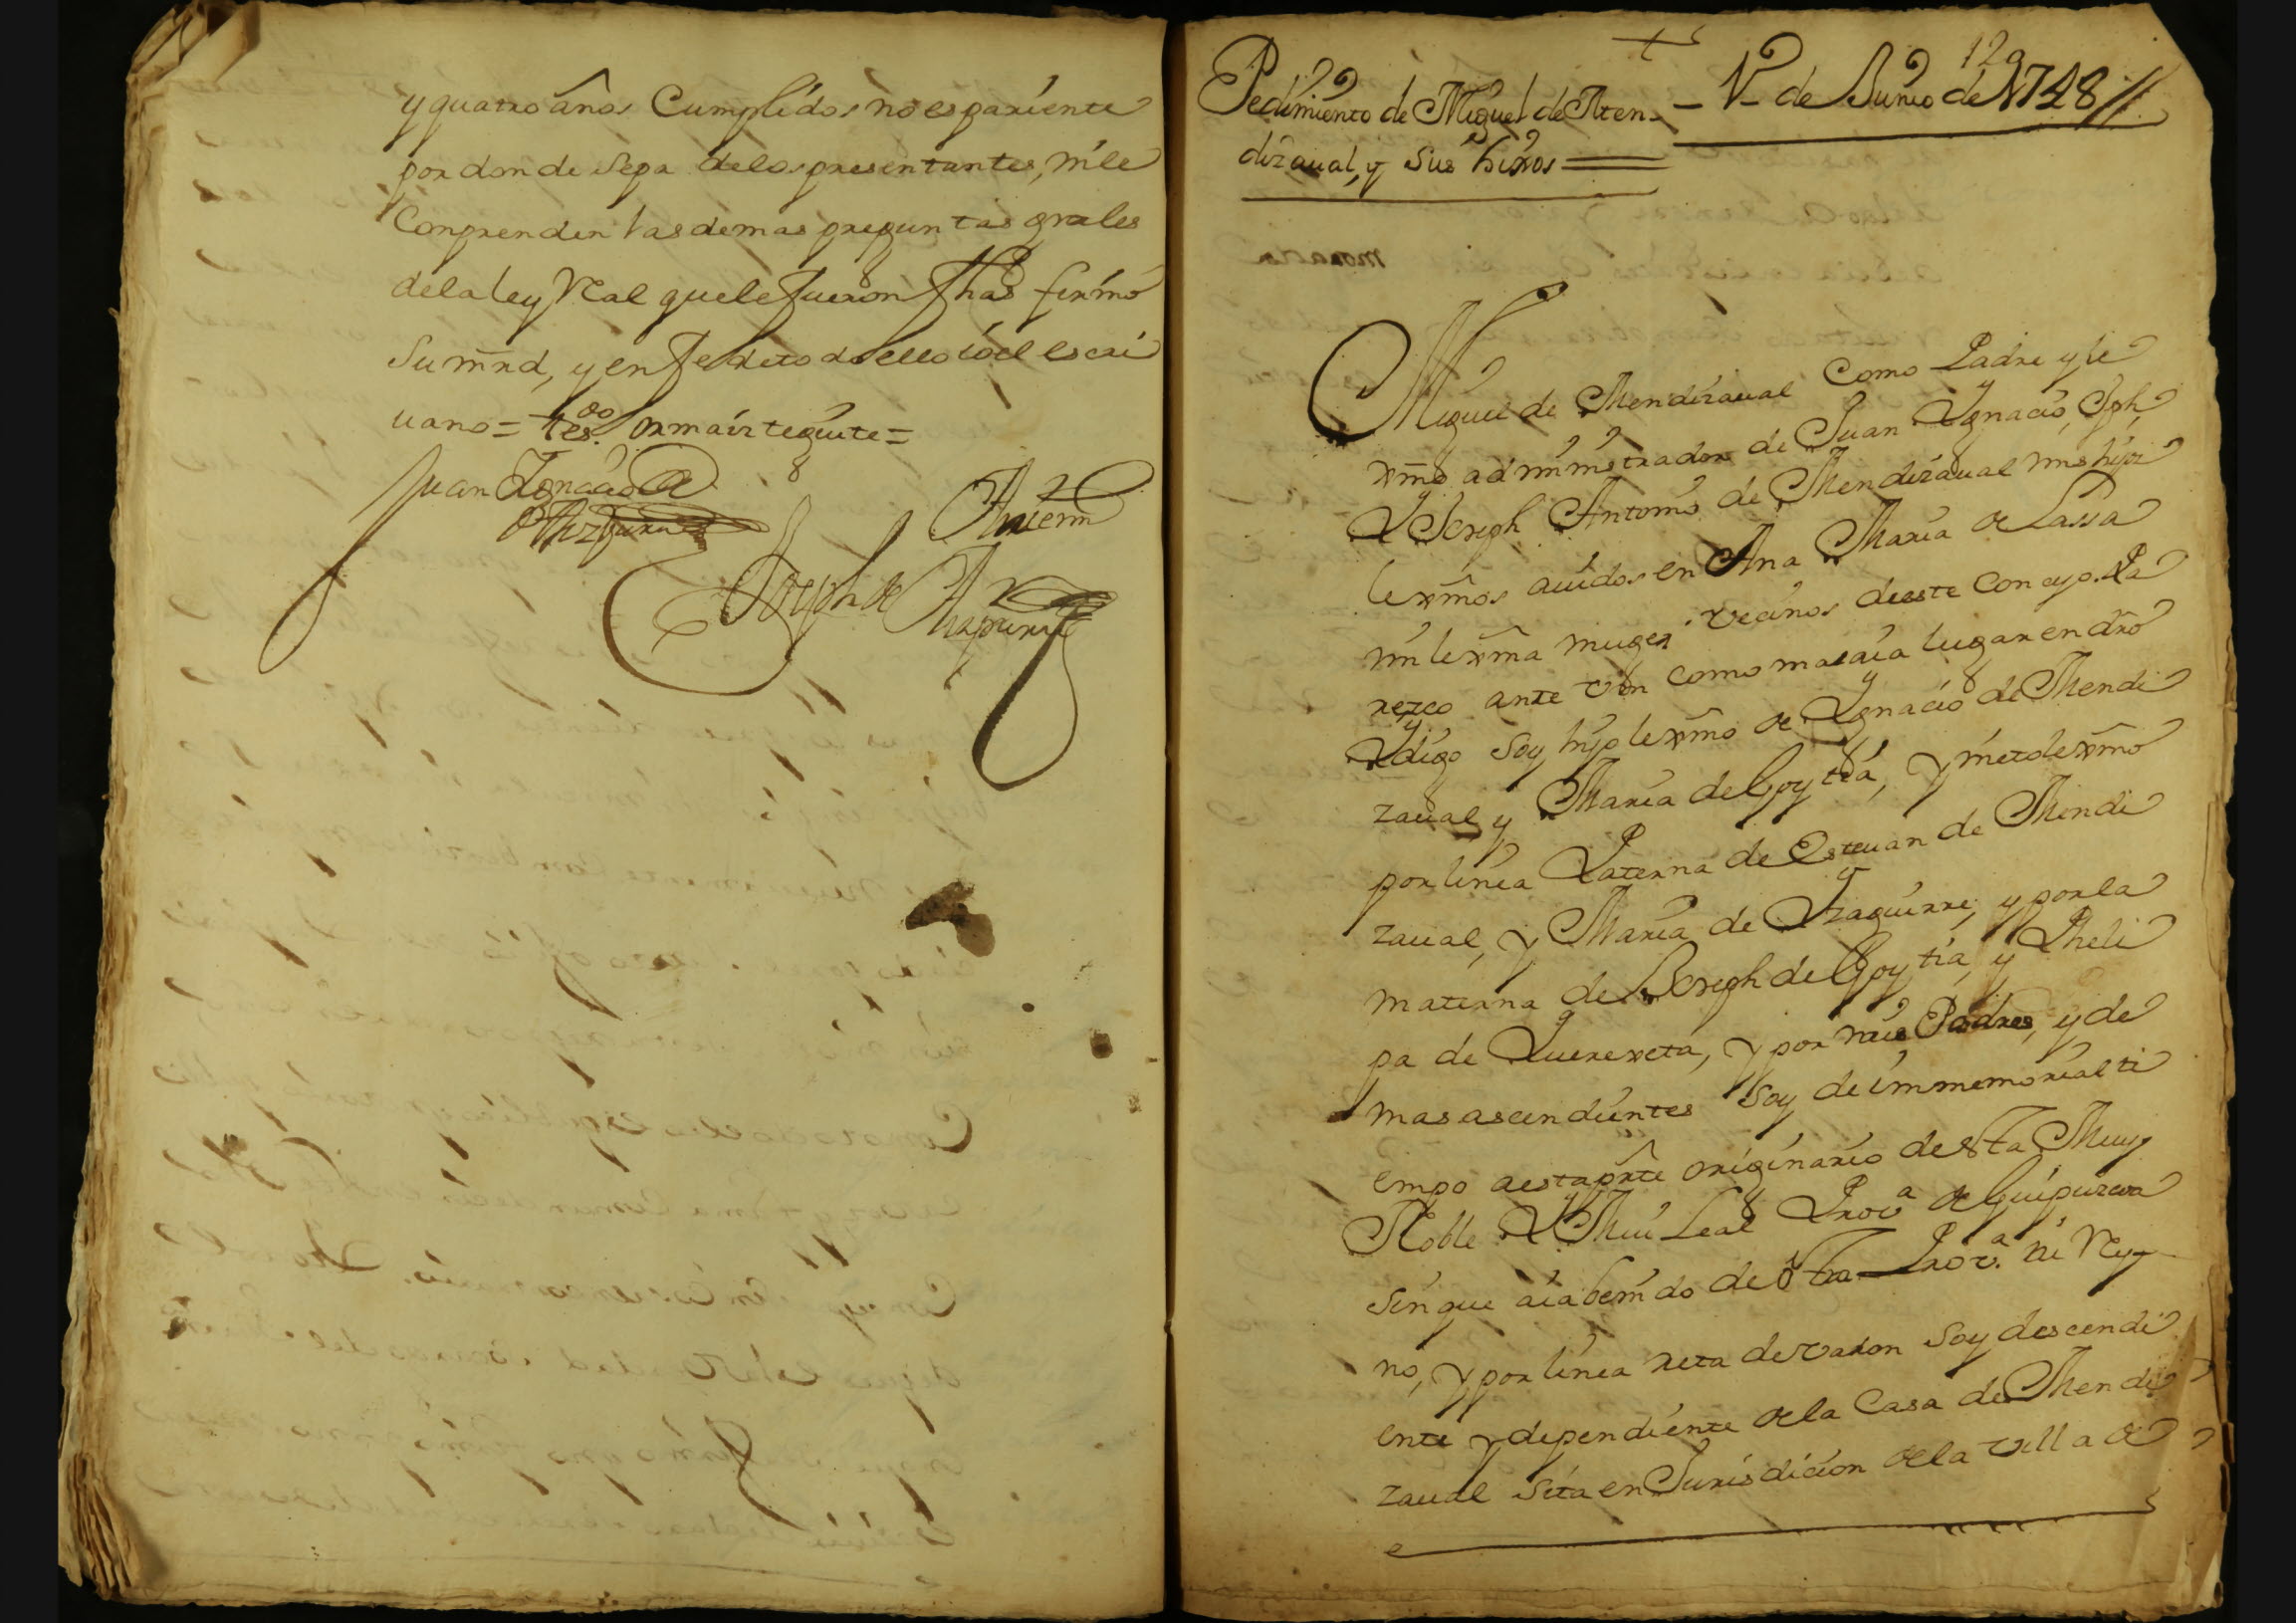 y quatro años Cumplidos no es pariente
por donde sepa delos presentantes, nile
Comprenden las demas preguntas grales
dela ley Real que le fueron fhas firmo
Su mrd, y en fe de todo ello io el escri
uano = tdo
Juan Ignacio
Antemi
Joseph de
129
Pedimiento de Miguel de Men-
dizaual, y sus hixos =
de Junio de 1748 //
Miguel de Mendizaual Como Padre y le
xmo administrador de Juan Ygnacio, Jph,
Y Joseph Antonio de Mendizaual mis hijos
lexmos auidos en Ana Maria de Lassa
mi lexma muger vecinos deeste Concejo. Pa
rezco ante Vm como mas aia lugar en dro
Y digo soy hijo lexmo de Ygnacio de Mendi
zaual y Maria de Goytia, y nieto lexmo
por linea Paterna de Esteuan de Mendi
zaual, y Maria de Yzaguirre, y por la
materna de Joseph de Goytia, y Pheli
pa de Querexeta, y por mis Padres, y de
mas ascendientes soy de immemorial ti
empo aesta prte originario de esta Muy
Noble Y Mui Leal Prova de Guipuzcoa
sin que aia benido de otra Prova. ni Rey
no, y por linea reta de varon soy descendi
ente y dependiente dela Casa de Mendi
zaual sita en Jurisdicion dela villa de